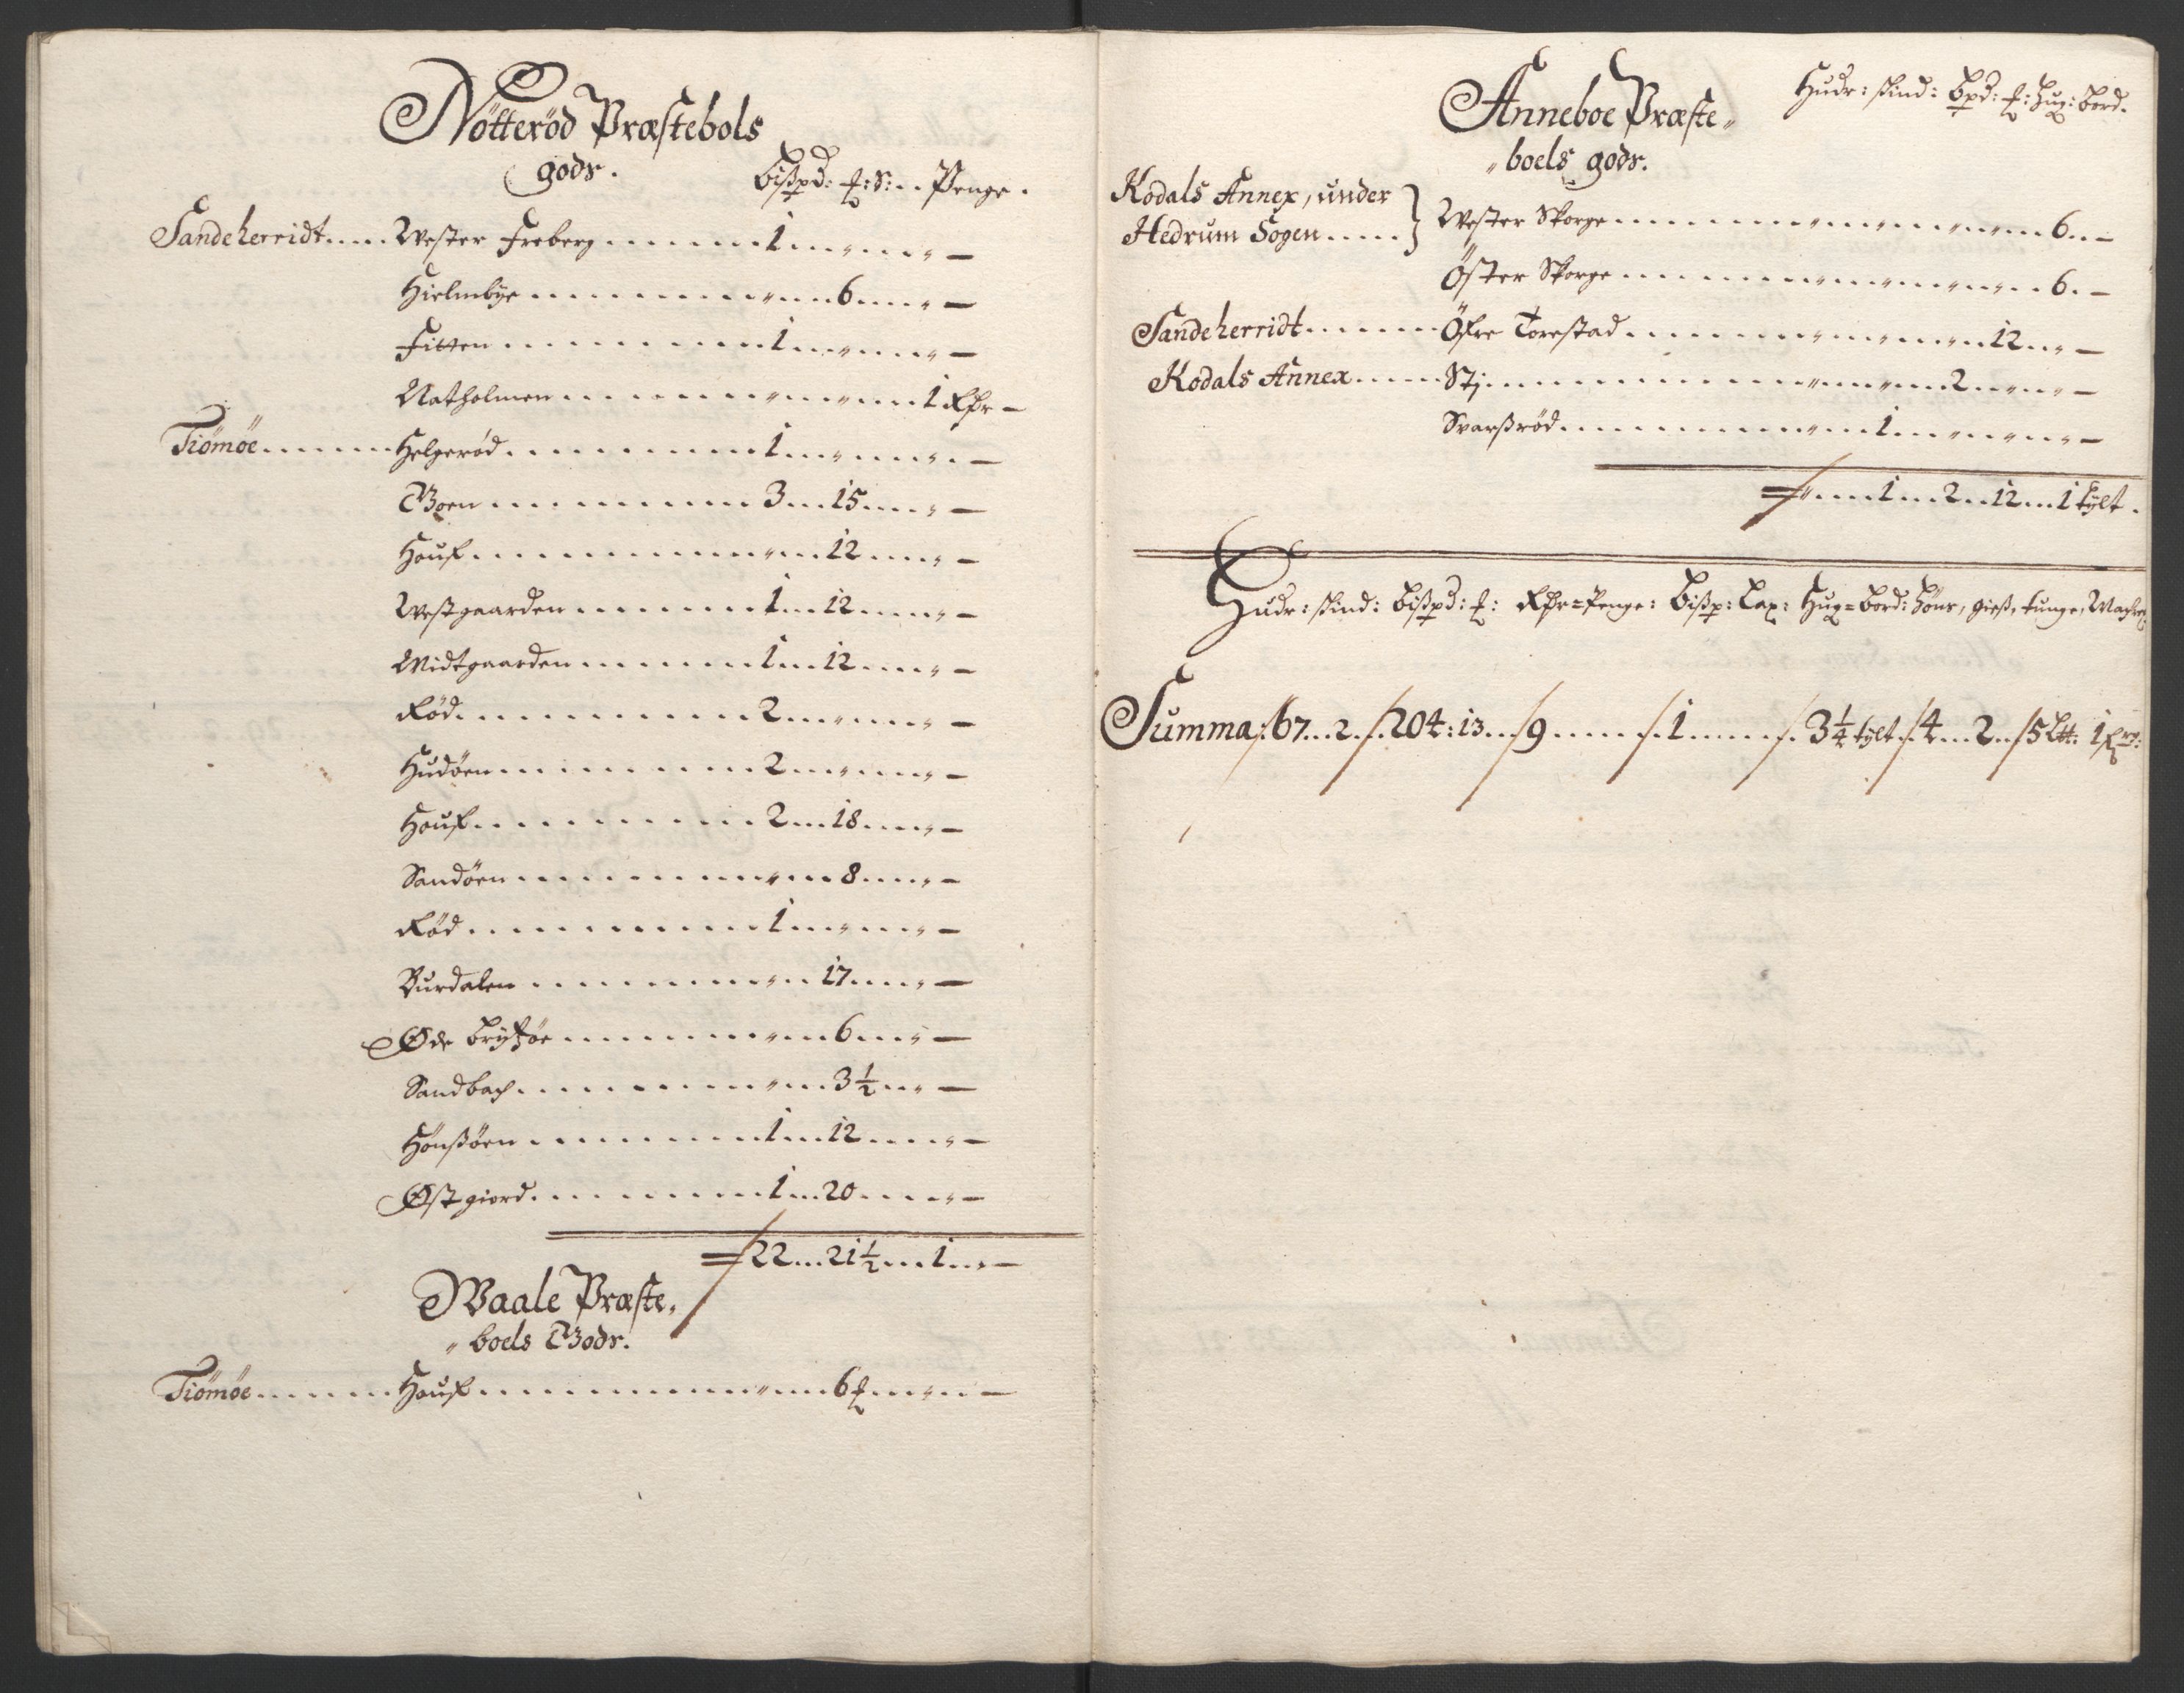 Nötteröd Præstebols
gods.
Bißpd: ℔: S: .. Penge.
Sandeherridt..... Wester Freberg ........ 1 ...„...„ –
Hielmbye ........„... 6 ....„ –
Fitten ........ 1 ...„...„ –
Natholmen ........„...„... 1 Rdr –
Tiömöe ...... Helgeröd ........ 1 ...„...„ –
Moen ........ 3 ... 15 ....„ –
Houf ........„... 12 ....„ –
Westgaarden ........ 1 ... 12 ....„ –
Midtgaarden ........ 1 ... 12 ....„ –
Röd ........ 2 ...„...„ –
Hudöen ........ 2 ...„...„ –
Houf ........ 2 ... 18 ....„ –
Sandöen ........„... 8 ....„ –
Röd ........ 1 ...„...„ –
Burdalen ........„... 17 ....„ –
Øde Brÿtzöe ........„... 6 ....„ –
Sandbach ........„... 3½ ..„ –
Hönßöen ........ 1 ... 12 ....„ –
Østgiord ........ 1 ... 20 ....„ –
= 22 ... 21½ ... 1 ..„ –
Waale Præste„
„boels Gods.
Tiömöe ...... Houf ........„... 6 ℔ ...„.. –
Anneboe Præste„
„boels gods.
Hudr: skind: Bpd: ℔: Hug: bord.
Kodals Annex, under
Hedrum Sogen .....} Wester Skorge ........„...„...„... 6 .. –
Öster Skorge ........„...„...„... 6 . –
Sandeherridt ...... Öfre Torestad ........„...„...„.. 12 ..„ –
Kodals Annex ..... Stj ........„...„... 2 ..„..„ –
Svarßröd ........„... 1 ...„..„..„ –
= „.... 1 ... 2 ... 12 ... 1 tÿlt.
Hudr: skind: Bißpd: ℔: Rdr= Penge: Bißp: Lax: Hug= bord: Höns, gieß, tunge,
Summa /: 67 ... 2 ./. 204: 13 ../ 9 ...... /. 1 ..... /. 3¼ tÿlt ./. 4 ... 2 ../ 5 Ltt: